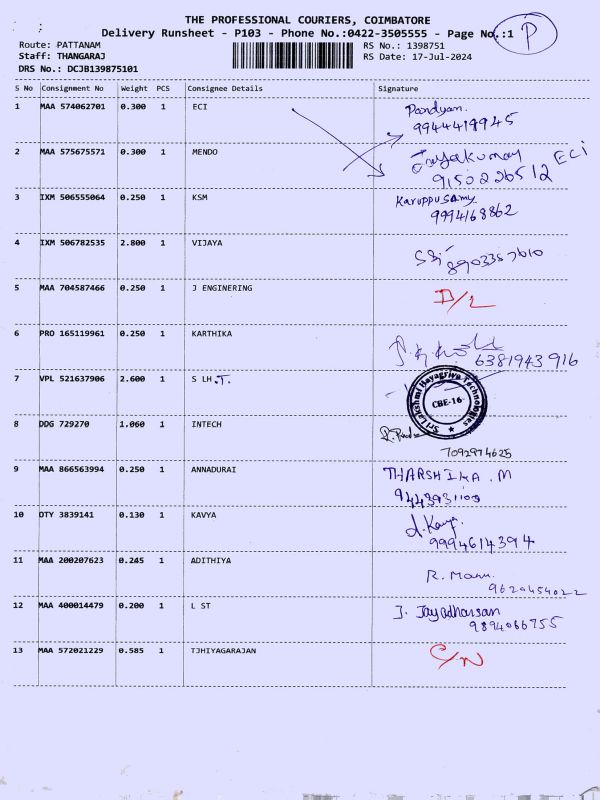 THE PROFESSIONAL COURIERS, COIMBATORE
Delivery Runsheet - P103 - Phone No.:0422-3505555 - Page No.:1 P
Route: PATTANAM
Staff: THANGARAJ
DRS No.: DCJB139875101
RS No.: 1398751
RS Date: 17-Jul-2024
S No Consignment No Weight PCS Consignee Details Signature
1 MAA 574062701 0.300 1 ECI Pandiyan.
9944419945
2 MAA 575675571 0.300 1 MENDO Jayakumar ECI
9150226512
3 IXM 506555064 0.250 1 KSM Karuppusamy
9994168862
4 IXM 506782535 2.800 1 VIJAYA 8903357610
5 MAA 704587466 0.250 1 J ENGINERING D/L
6 PRO 165119961 0.250 1 KARTHIKA
6381943916
7 VPL 521637906 2.600 1 S LH.T.
Sri Lakshmi Hayagriva Technologies
CBE-16
8 DDG 729270 1.060 1 INTECH
7092974625
9 MAA 866563994 0.250 1 ANNADURAI THARSHIKA .M
10 DTY 3839141 0.130 1 KAVYA d. Kavya.
9994614394
11 MAA 200207623 0.245 1 ADITHIYA R. Manu.
9620454022
12 MAA 400014479 0.200 1 L ST J. Jayadharsan
9894066755
13 MAA 572021229 0.585 1 TJHIYAGARAJAN C/N